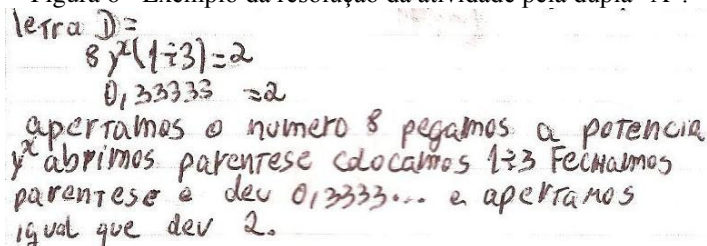 Figura 6 - Exemplo da resolução da atividade pela dupla "A".
letra D=
8 yˣ(1÷3)=2
0,33333 =2
apertamos o numero 8 pegamos a potencia
yˣ abrimos parentese colocamos 1÷3 Fechamos
parentese e deu 0,3333... e apertamos
igual que deu 2.